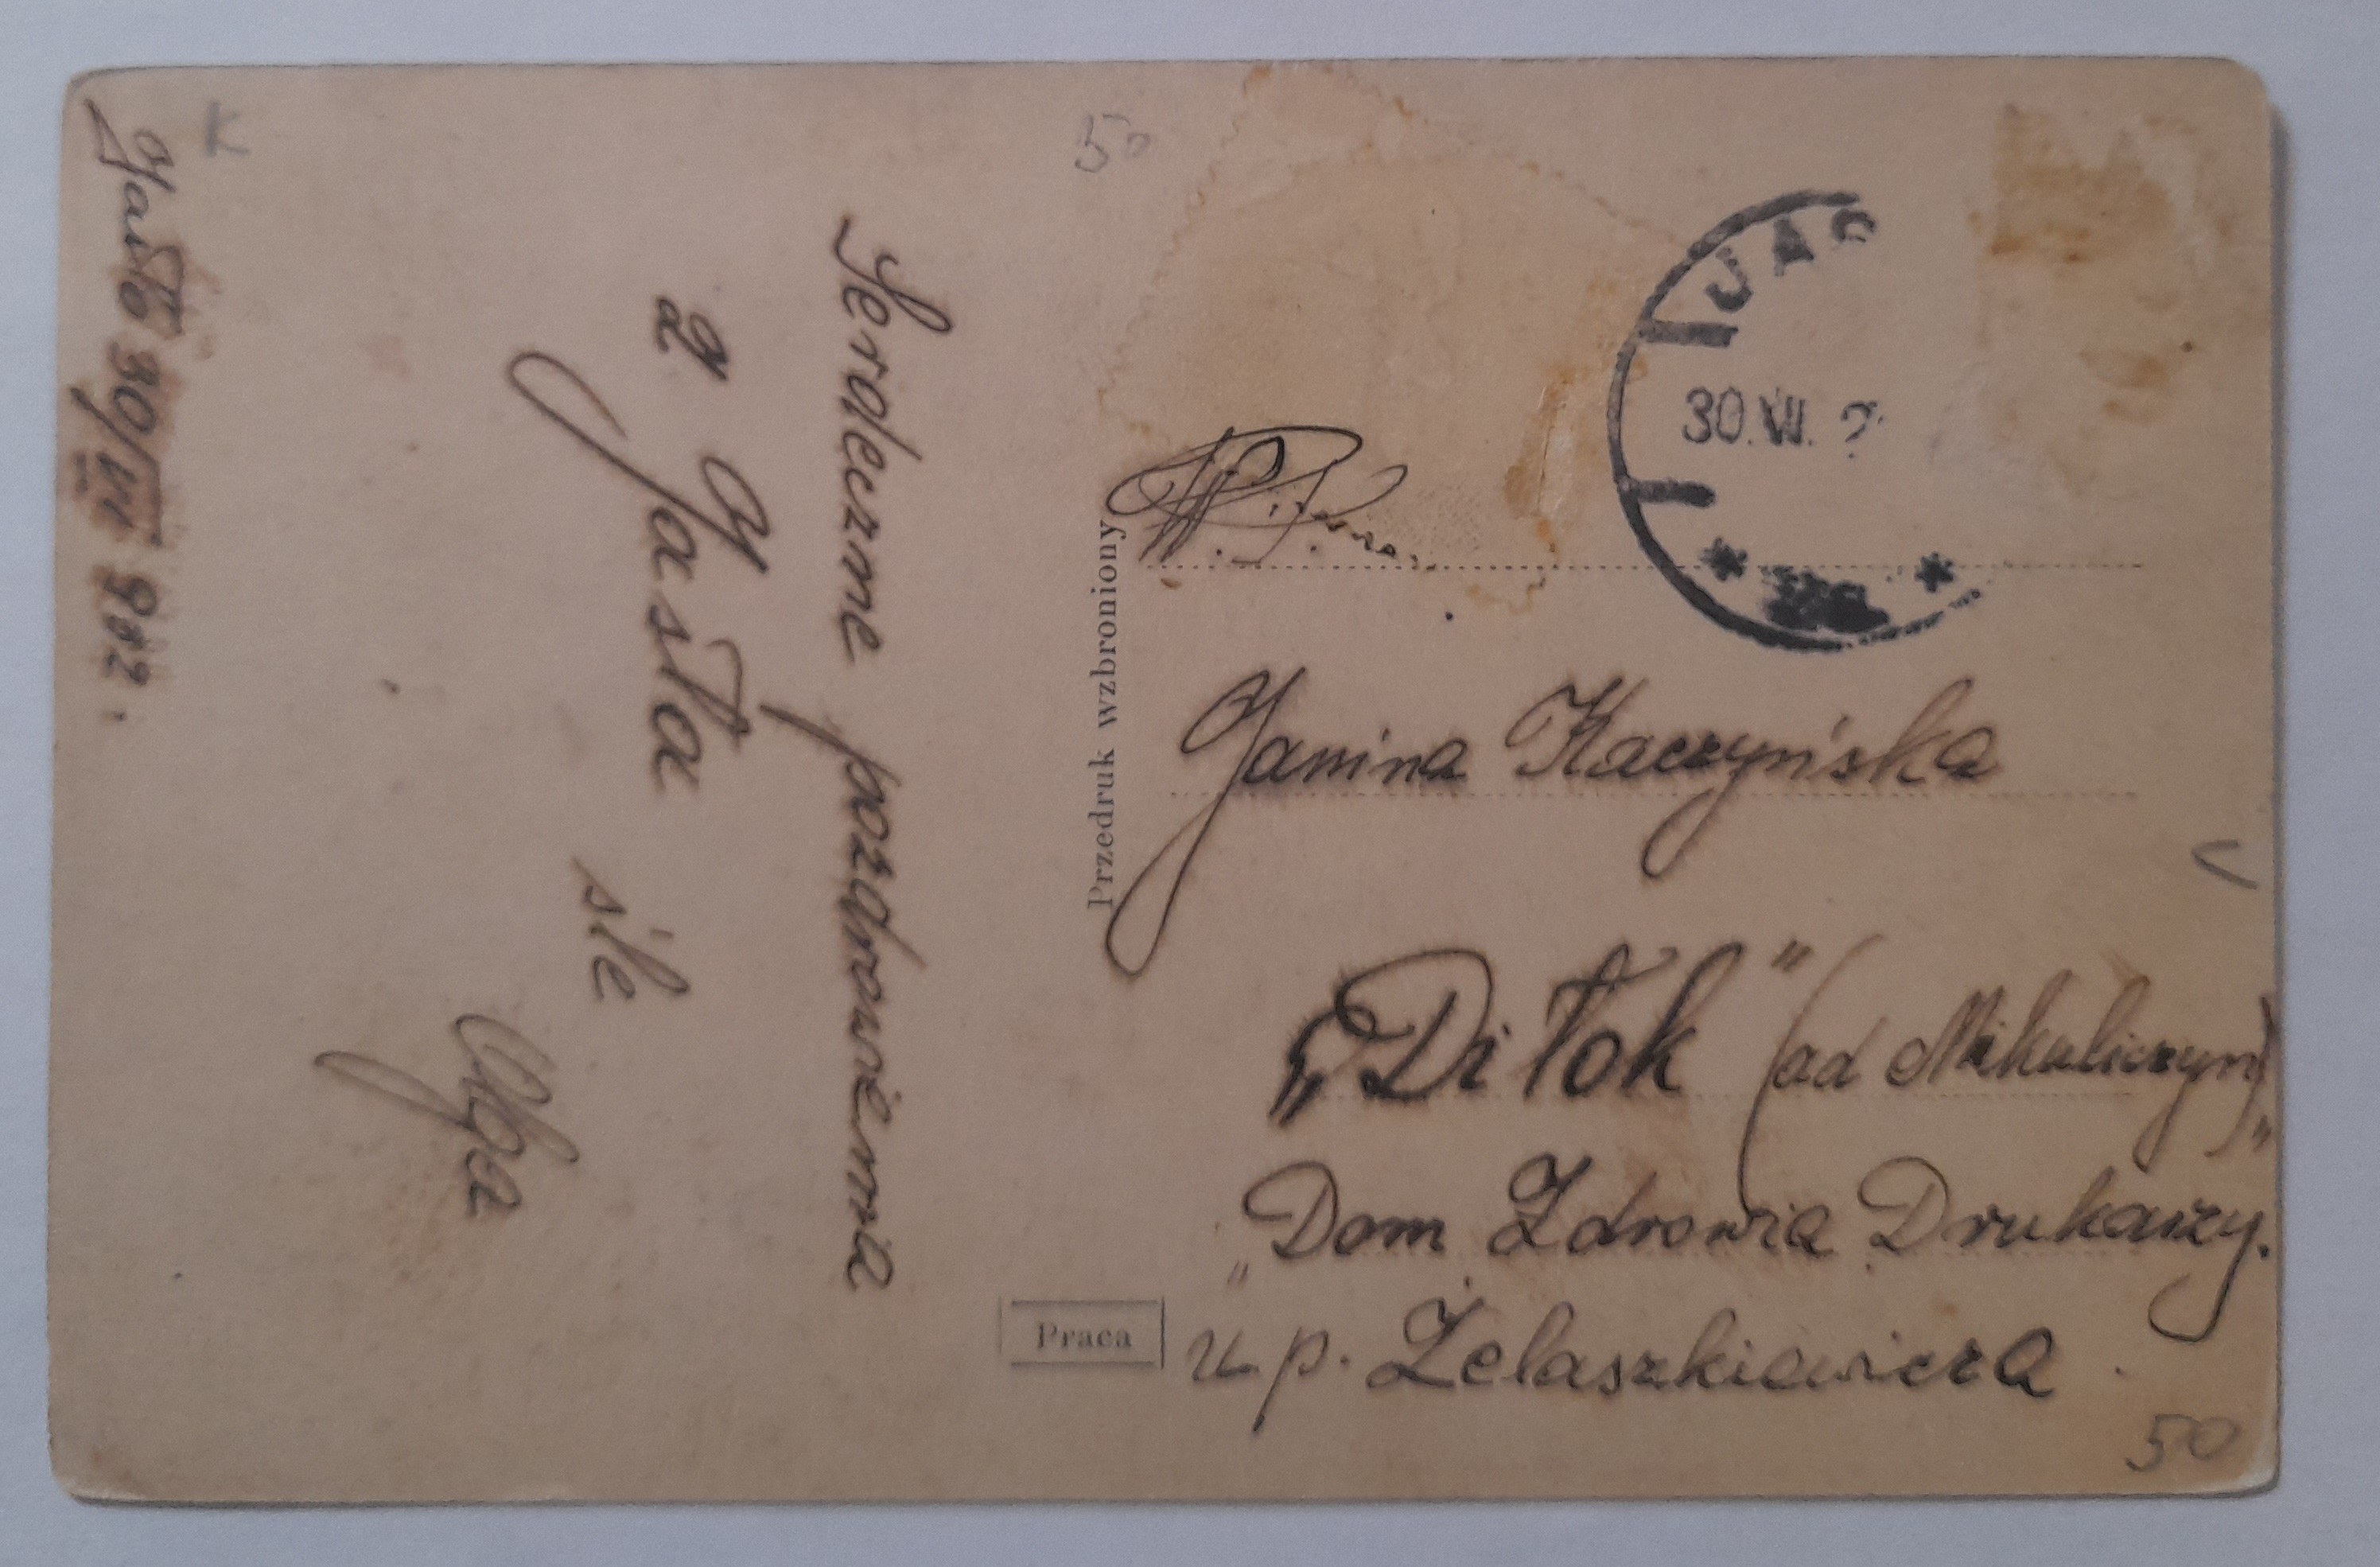 K
Jasło 30/VI 932.
Serdeczne pozdrowienia
z Jasła
śle
50
Przedruk wzbroniony
JAS
30.VII.
Janina Kaczyńska
„Ditok” (ad Mikuliczyn)
„Dom Zdrowia Drukarzy.”
u p. Żelaszkiewicza
Praca
50